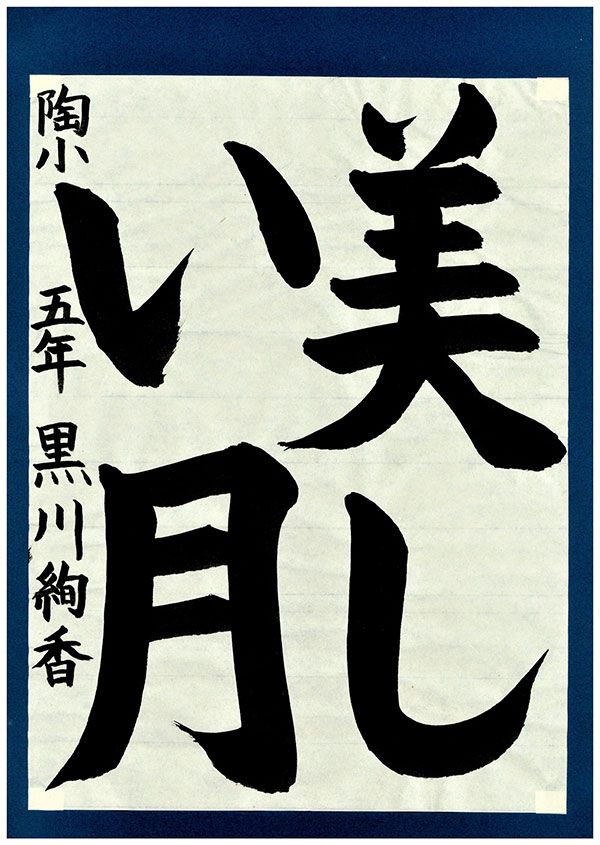 美し
い月
陶小 五年 黒川絢香